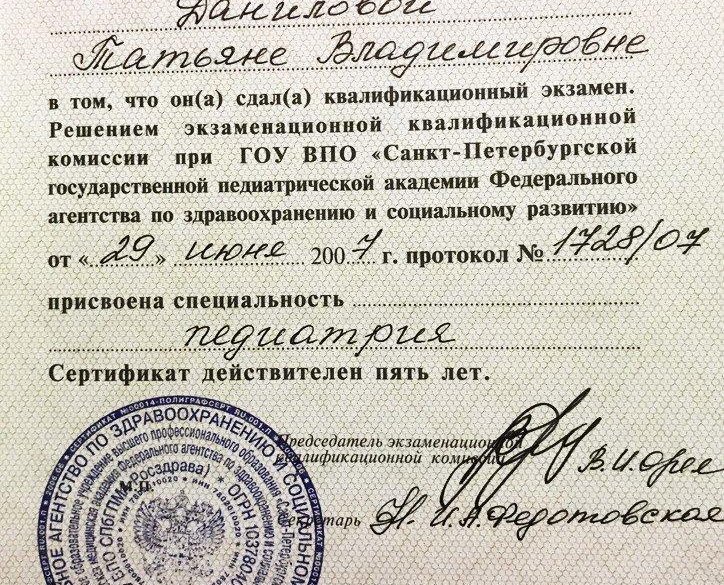 Даниловой
Татьяне Владимировне
в том, что он(а) сдал(а) квалификационный экзамен.
Решением экзаменационной квалификационной
комиссии при ГОУ ВПО «Санкт-Петербургской
государственной педиатрической академии Федерального
агентства по здравоохранению и социальному развитию»
от «29» июня 2007 г. протокол № 1728/07
присвоена специальность
педиатрия
Сертификат действителен пять лет.
Председатель экзаменационной
квалификационной комиссии
В.И. Орел
М.П.
Секретарь И.А. Федотовская
АГЕНТСТВО ПО ЗДРАВООХРАНЕНИЮ И СОЦИАЛЬНОМ